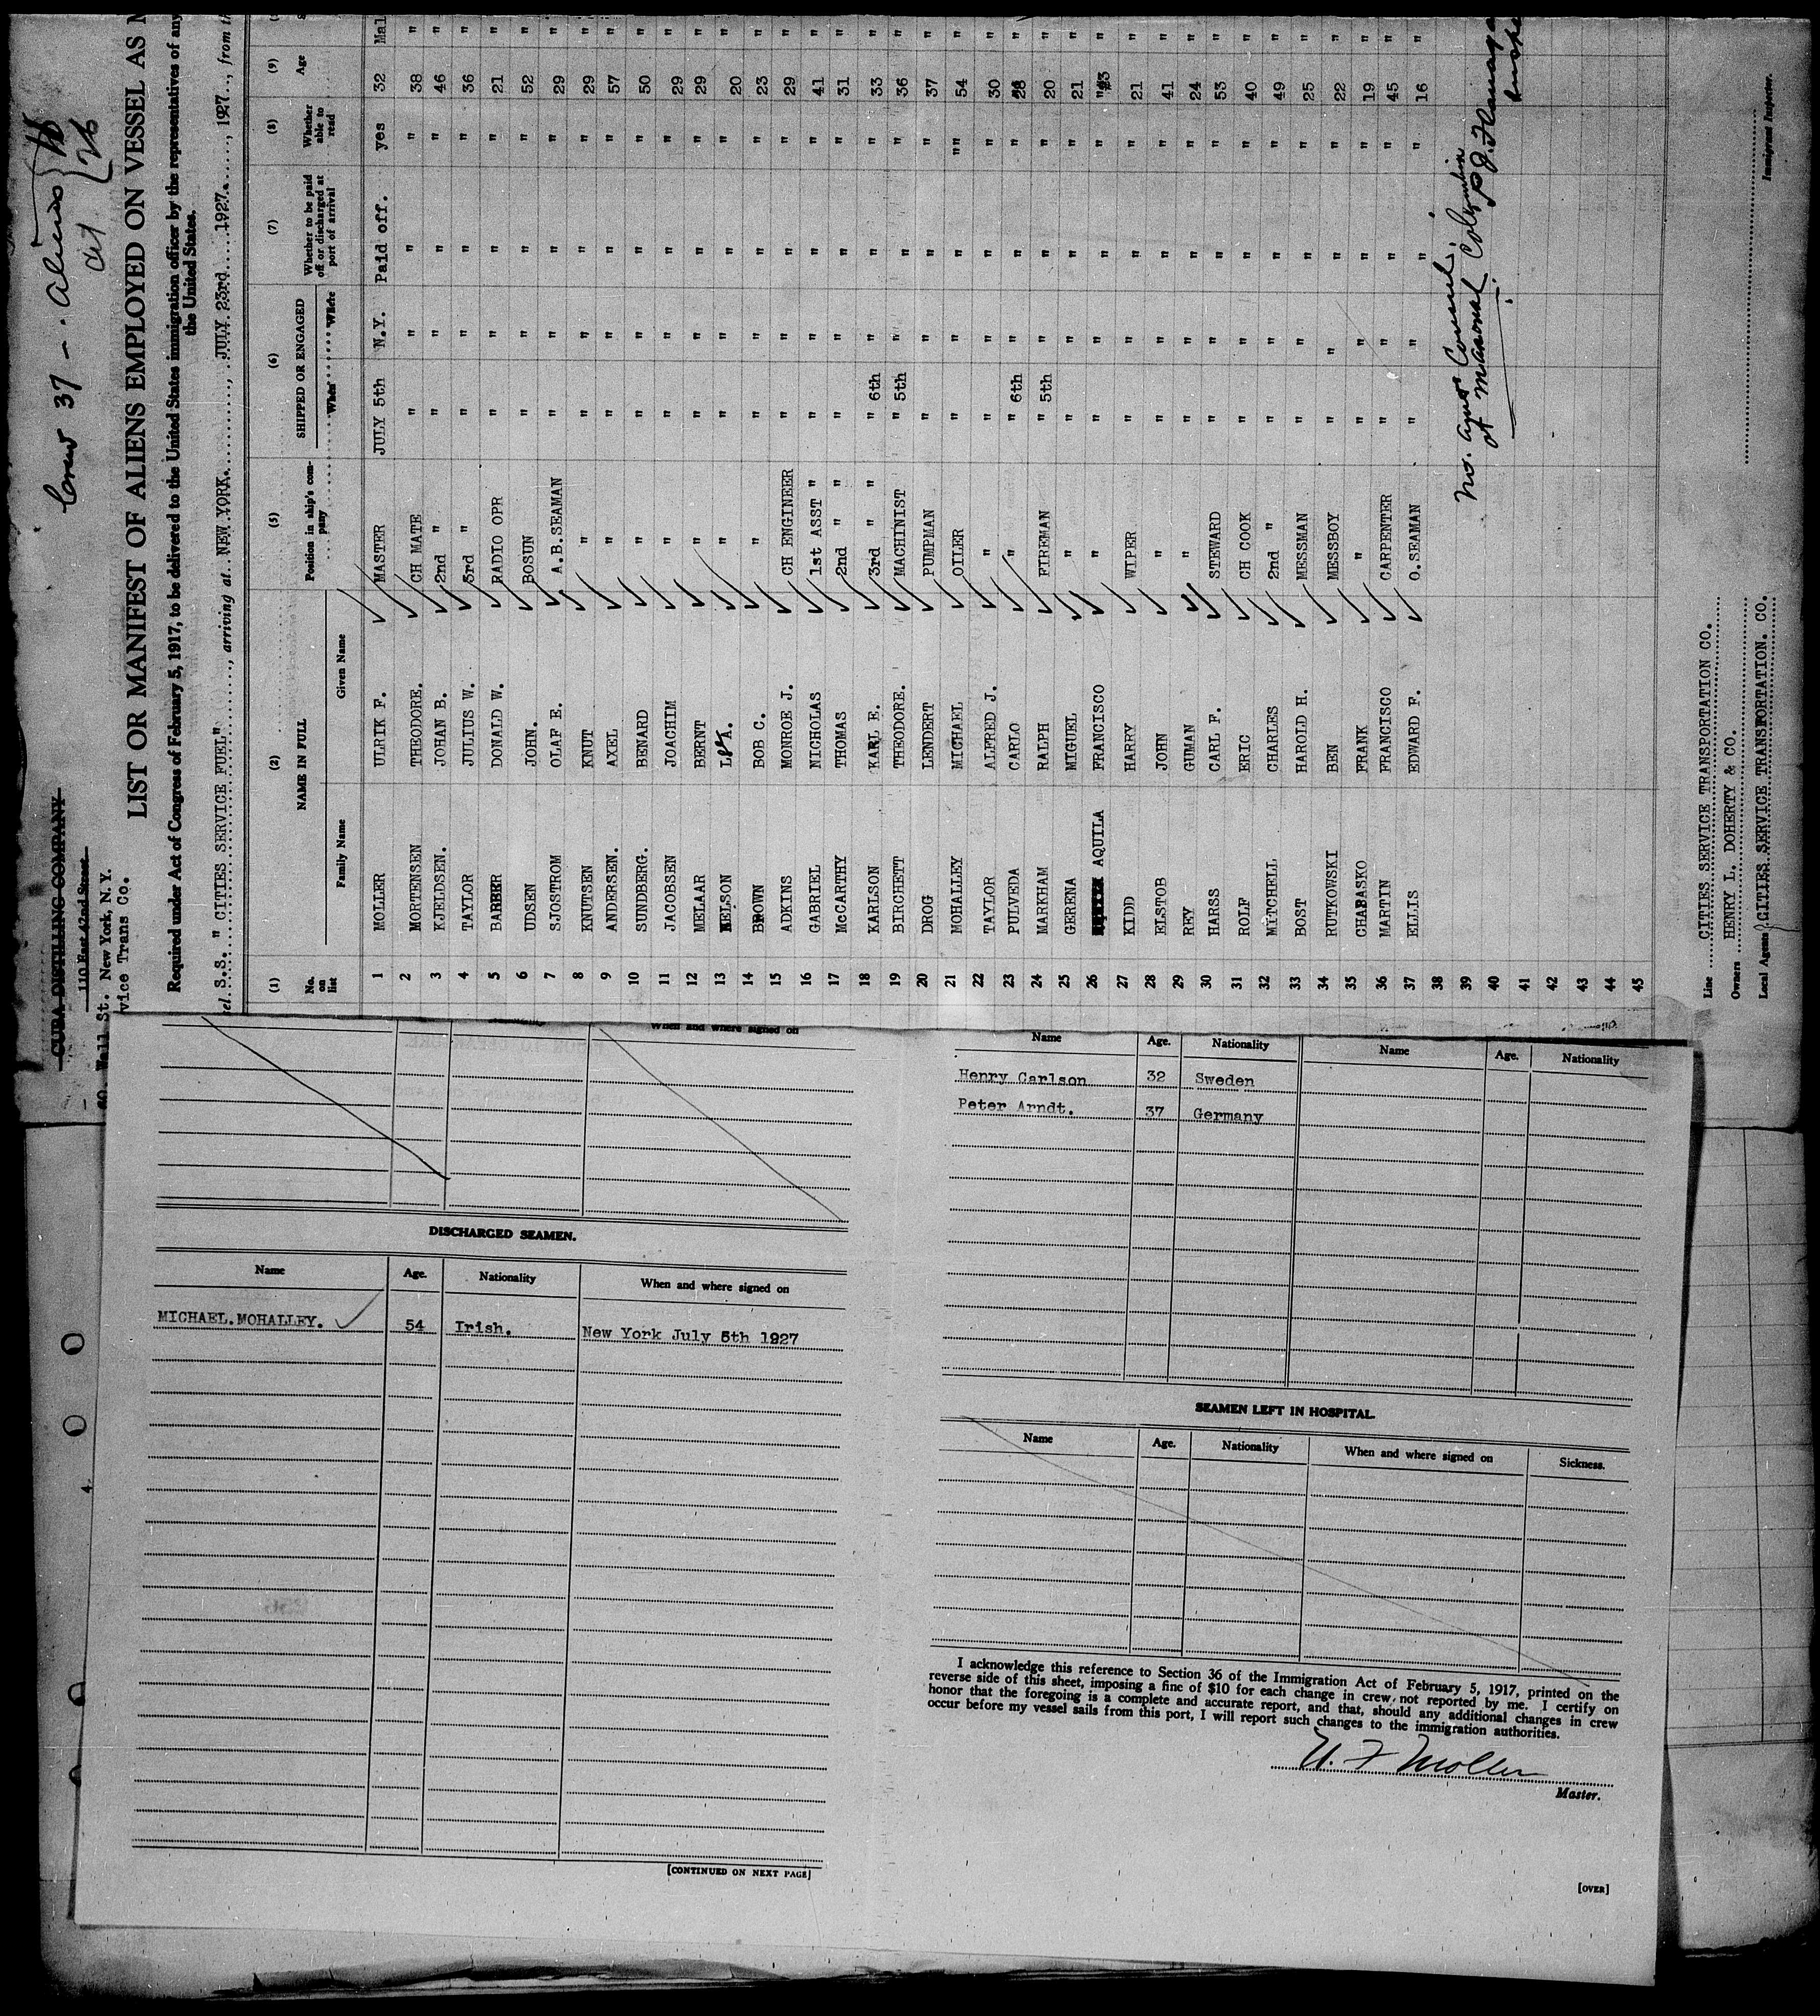 Crew 37 - Aliens
Cit 26
CUBA DISTILLING COMPANY
110 East 42nd Street
60 Wall St. New York, N.Y.
vice Trans Co.
LIST OR MANIFEST OF ALIENS EMPLOYED ON VESSEL AS M
Required under Act of Congress of February 5, 1917, to be delivered to the United States immigration officer by the representatives of any
the United States.
el S.S. " CITIES SERVICE FUEL", arriving at NEW YORK., JULY 23rd 1927., 1927, from th
(1) (2) (5) (6) (7) (8) (9)
No. on list NAME IN FULL Position in ship's company SHIPPED OR ENGAGED Whether to be paid off or discharged at port of arrival Whether able to read Age
Family Name Given Name When Where
1 MOLLER ULRIK F. MASTER JULY 5th N.Y. Paid off. yes 32 Mal
2 MORTENSEN THEODORE. CH MATE " " " " 38 "
3 KJELDSEN. JOHAN B. 2nd " " " " " 46 "
4 TAYLOR JULIUS W. 3rd " " " " " 36 "
5 BABBER DONALD W. RADIO OPR " " " " 21 "
6 UDSEN JOHN. BOSUN " " " " 52 "
7 SJOSTROM OLAF E. A.B.SEAMAN " " " " 29 "
8 KNUTSEN KNUT " " " " " 29 "
9 ANDERSEN. AXEL " " " " " 57 "
10 SUNDBERG. BENARD " " " " " 50 "
11 JACOBSEN JOACHIM " " " " " 29 "
12 MELAAR BERNT " " " " " 29 "
13 NELSON A. " " " " " 20 "
14 BROWN BOB C. " " " " " 23 "
15 ADKINS MONROE J. CH ENGINEER " " " " 29 "
16 GABRIEL NICHOLAS 1st ASST " " " " " 41 "
17 McCARTHY THOMAS 2nd " " " " " " 31 "
18 KARLSON KARL E. 3rd " " " 6th " " " 33 "
19 BIRCHETT THEODORE. MACHINIST " 5th " " " 36 "
20 DROG LENDERT PUMPMAN " " " " 37 "
21 MOHALLEY MICHAEL OILER " " " "" 54 "
22 TAYLOR ALFRED J. " " " " " 30 "
23 PULVEDA CARLO " " 6th " " " 28 "
24 MARKHAM RALPH FIREMAN " 5th " " " 20 "
25 GERENA MIGUEL " " " " " 21 "
26 AQUILA FRANCISCO " " " " " "
27 KIDD HARRY WIPER " " " " 21 "
28 ELSTOB JOHN " " " " " 41 "
29 REY GUMAN " " " " " 24 "
30 HARSS CARL F. STEWARD " " " " 53 "
31 ROLF ERIC CH COOK " " " " 40 "
32 MITCHELL CHARLES 2nd " " " " " 49 "
33 BOST HAROLD H. MESSMAN " " " " 25 "
34 RUTKOWSKI BEN MESSBOY " " " " 22 "
35 CHABASKO FRANK " " " " " 19 "
36 MARTIN FRANCISCO CARPENTER " " " " 45 "
37 ELLIS EDWARD F. O.SEAMAN " " " " 16 "
38
39
40
41
42
43
44
45
No. Consul.
at Colombia
P.J.
Line CITIES SERVICE TRANSPORTATION CO.
Owners HENRY L. DOHERTY & CO.
Local Agents CITIES SERVICE TRANSPORTATION. CO. Immigrant Inspector.
When and where signed on
DISCHARGED SEAMEN.
Name Age. Nationality When and where signed on
MICHAEL.MOHALLEY. 54 Irish. New York July 5th 1927
[CONTINUED ON NEXT PAGE]
Name Age. Nationality Name Age. Nationality
Henry Carlson 32 Sweden
Peter Arndt. 37 Germany
SEAMEN LEFT IN HOSPITAL.
Name Age. Nationality When and where signed on Sickness.
I acknowledge this reference to Section 36 of the Immigration Act of February 5, 1917, printed on the
reverse side of this sheet, imposing a fine of $10 for each change in crew not reported by me. I certify on
honor that the foregoing is a complete and accurate report, and that, should any additional changes in crew
occur before my vessel sails from this port, I will report such changes to the immigration authorities.
U. F Moller
Master.
[OVER]